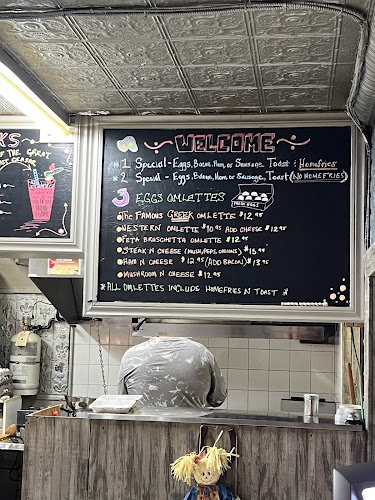 OF THE GREAT
WELCOME
#1 Special - Eggs, Bacon, Ham, or Sausage Toast & Homefries
#2 Special - Eggs, Bacon, Ham, or Sausage, Toast (NO HOMEFRIES)
3 EGGS OMLETTES
FRESH EGGS
•The FAMOUS GREEK OMLETTE $12.95
•WESTERN OMLETTE $10.95 ADD CHEESE $12.95
•FETA BRUSCHETTA OMLETTE $12.95
•STEAK N CHEESE (MUSH, PEPS, ONIONS) $15.95
•HAM N CHEESE $12.95 (ADD BACON) $13.95
•MUSHROOM N CHEESE $12.95
*ALL OMLETTES INCLUDE HOMEFRIES N TOAST *